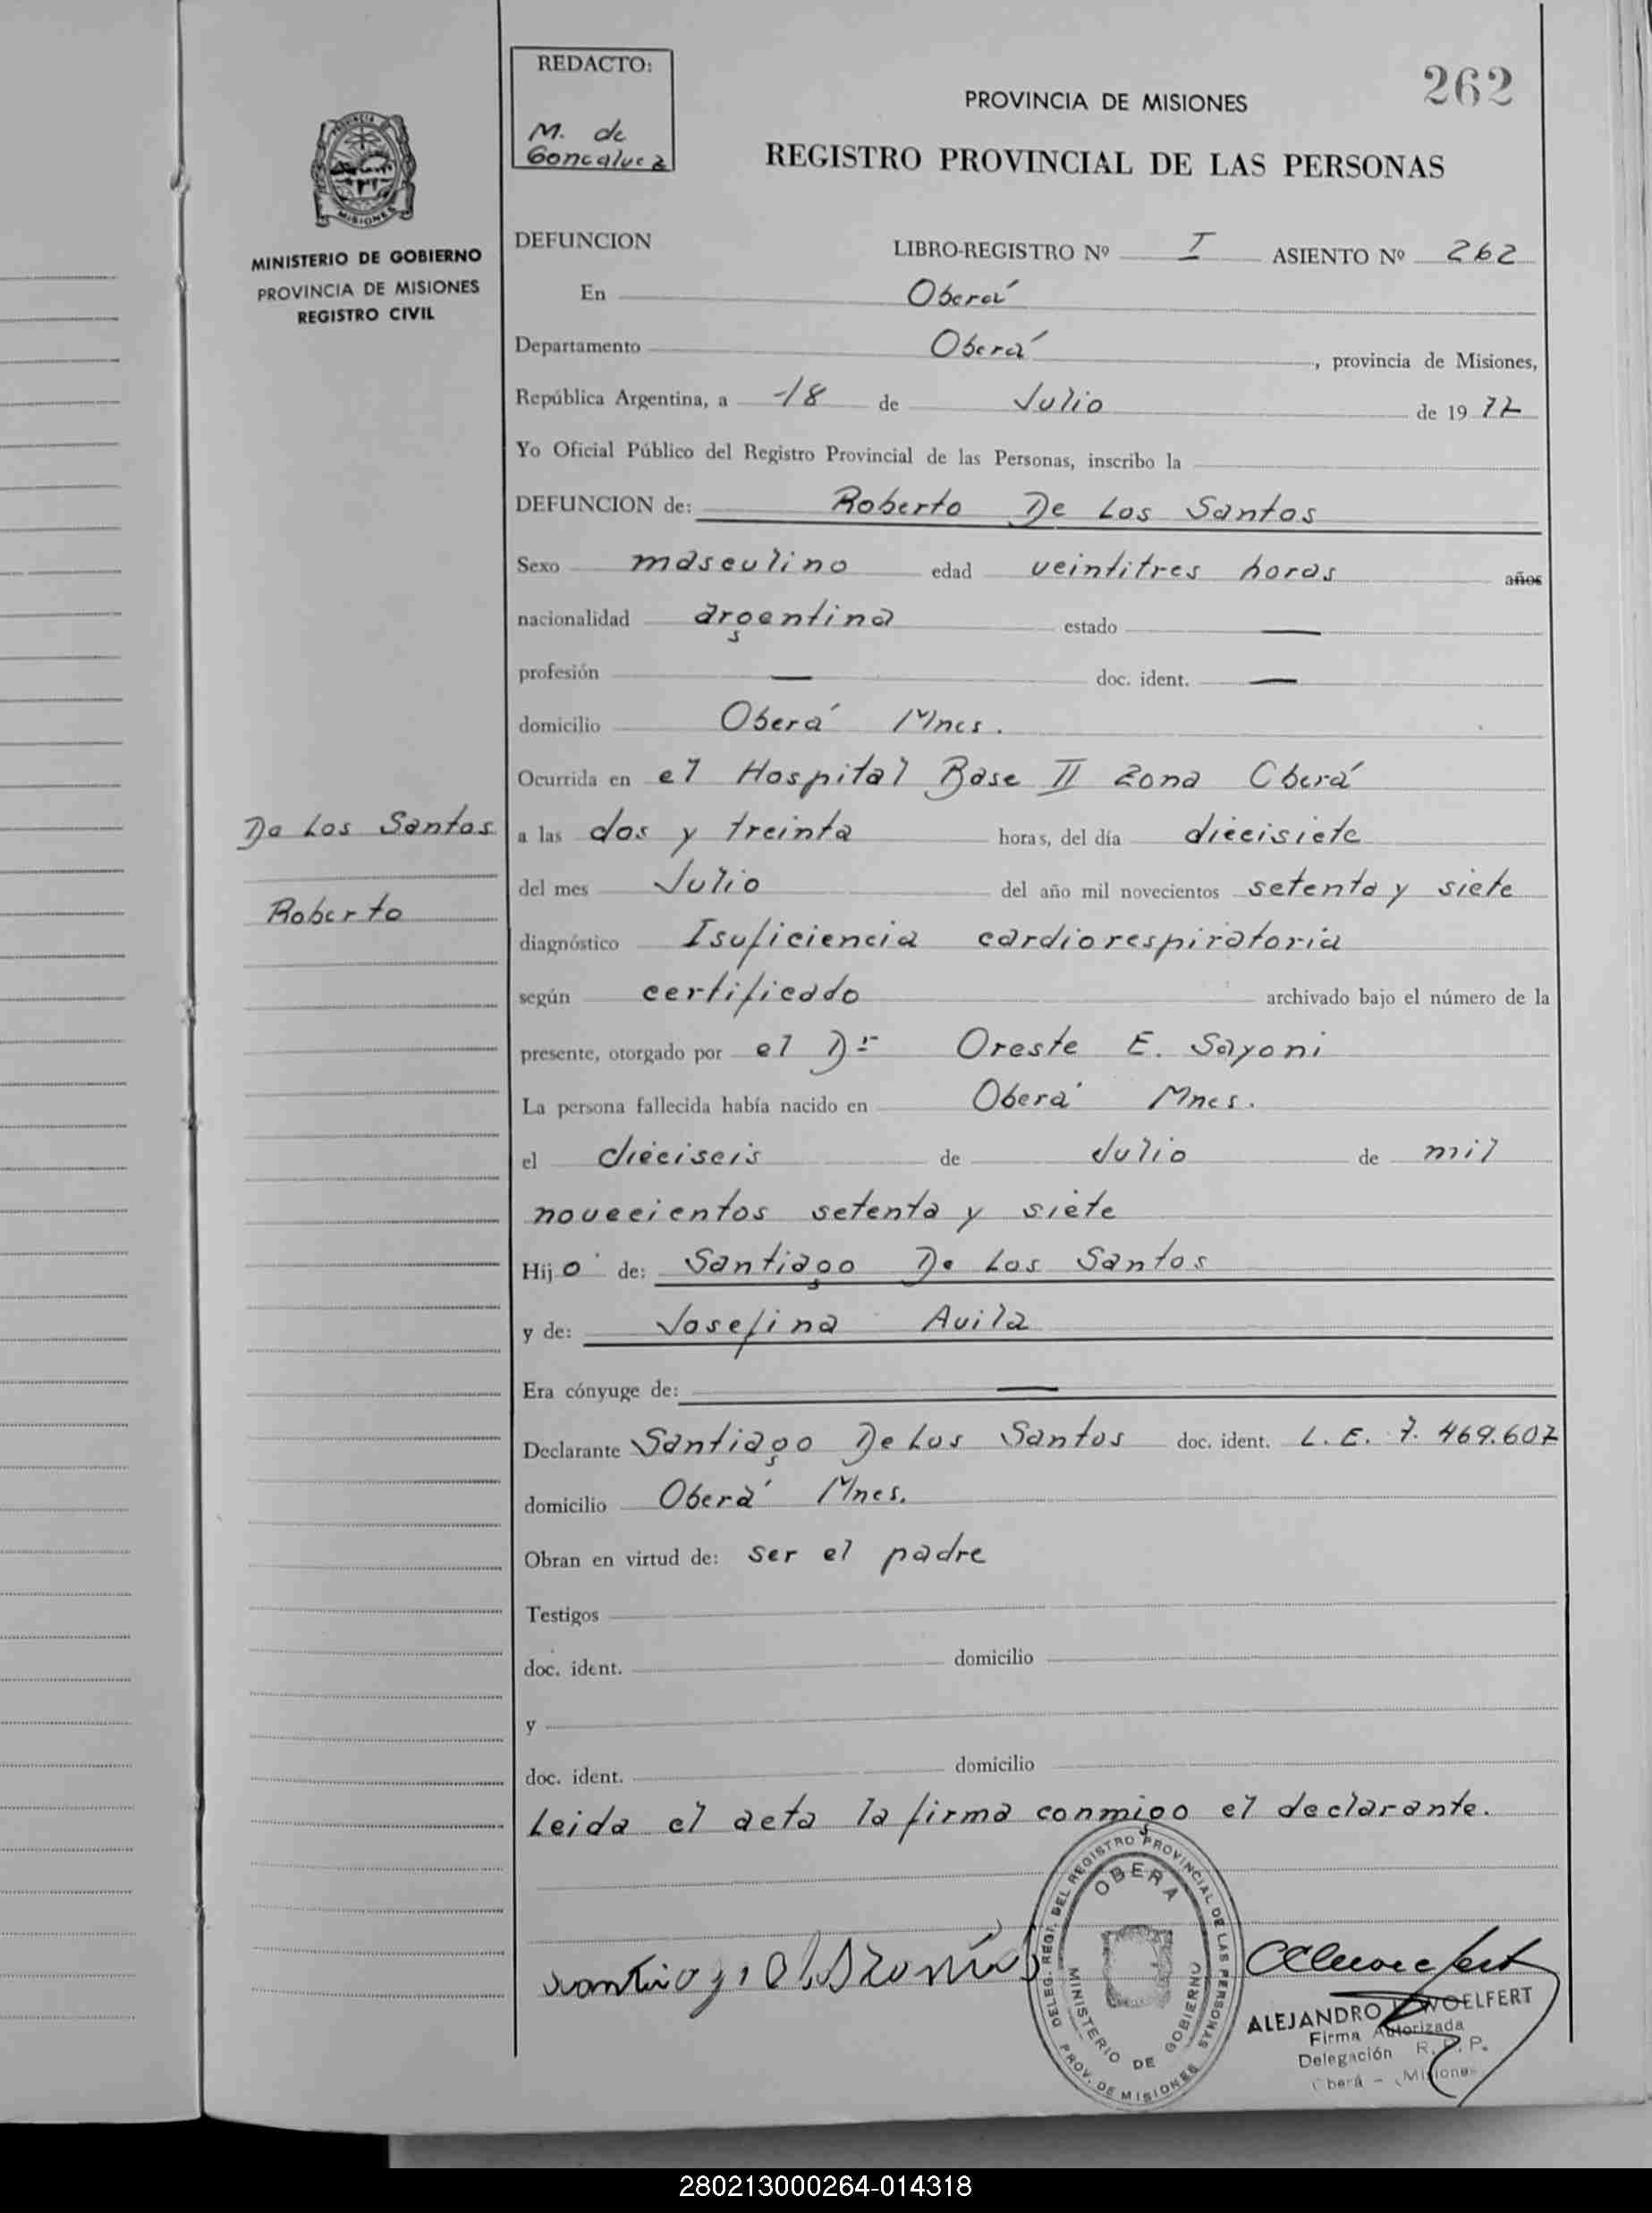 REDACTO:
M. de
Goncalvez
262
PROVINCIA DE MISIONES
REGISTRO PROVINCIAL DE LAS PERSONAS
MISIONES
MINISTERIO DE GOBIERNO
PROVINCIA DE MISIONES
REGISTRO CIVIL
DEFUNCION LIBRO-REGISTRO Nº I ASIENTO Nº 262
En Oberá
Departamento Oberá, provincia de Misiones,
República Argentina, a 18 de Julio de 19 77
Yo Oficial Público del Registro Provincial de las Personas, inscribo la
DEFUNCION de: Roberto De Los Santos
Sexo masculino edad veintitres horas años
nacionalidad argentina estado —
profesión — doc. ident. —
domicilio Oberá Mnes.
Ocurrida en el Hospital Base II Zona Oberá
De Los Santos
Roberto
a las dos y treinta horas, del día diecisiete
del mes Julio del año mil novecientos setenta y siete
diagnóstico Isuficiencia cardiorespiratoria
según certificado archivado bajo el número de la
presente, otorgado por el Dr Oreste E. Sayoni
La persona fallecida había nacido en Oberá Mnes.
el dieciseis de Julio de mil
novecientos setenta y siete
Hijo de: Santiago De Los Santos
y de: Josefina Avila
Era cónyuge de: —
Declarante Santiago De Los Santos doc. ident. L. E. 7. 469.607
domicilio Oberá Mnes.
Obran en virtud de: ser el padre
Testigos
doc. ident. domicilio
y
doc. ident. domicilio
Leida el acta la firma conmigo el declarante.
DELEG. REGT. DEL REGISTRO PROVINCIAL DE LAS PERSONAS
OBERA
MINISTERIO DE GOBIERNO
PROV. DE MISIONES
ALEJANDRO WOELFERT
Firma Autorizada
Delegación R. P. P.
Oberá - Misiones
280213000264-014318